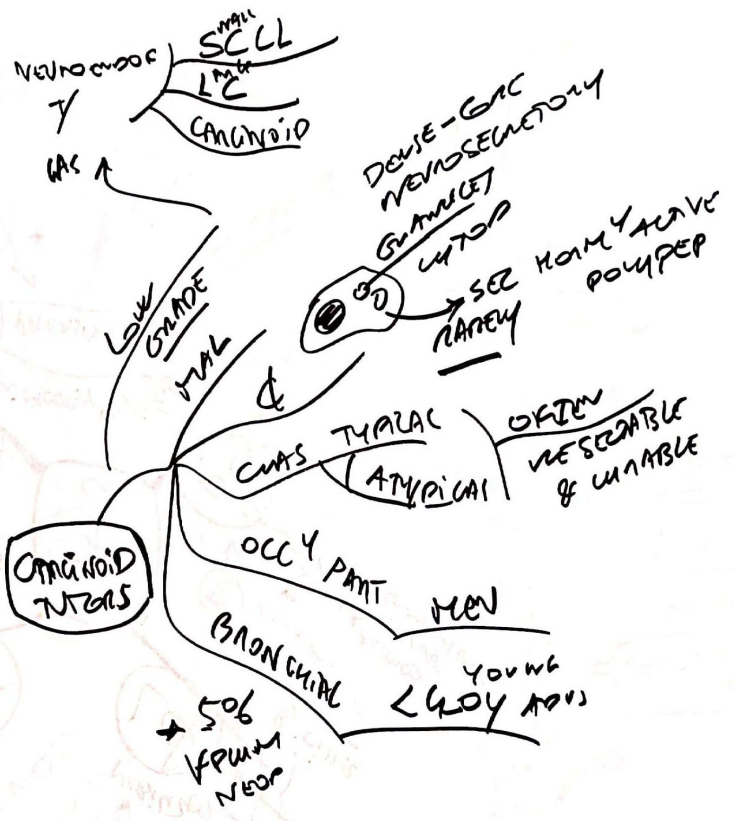 NEUROENDOC
T/
SMALL
SCCL
LC
CARCINOID
CLAS
LOW
GRADE
MAL
DENSE-CORE
NEUROSECRETORY
GRANULES
CYTOP
SEC HORM Y ACTIVE
POLYPEP
RARELY
¢
CLAS TYPICAL
ATYPICAL
OFTEN
RESECTABLE
& CURABLE
CARCINOID
TUMORS
OCC Y PART
MEN
BRONCHIAL
YOUNG
<40Y ADUS
5%
NEOP